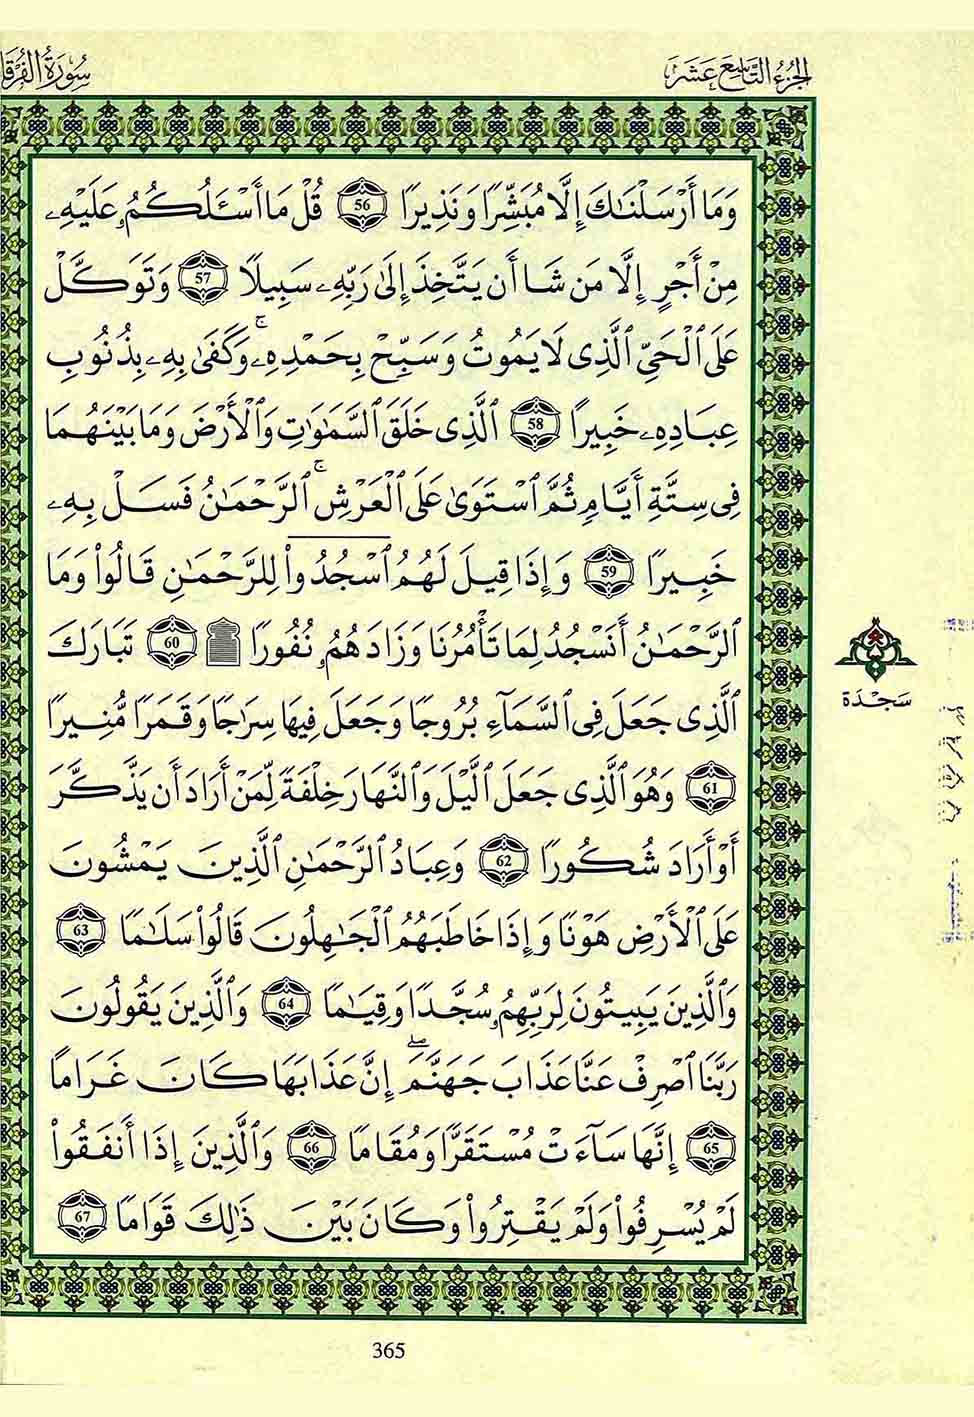 الجُزْءُ التَّاسِعَ عَشَرَ
سُورَةُ الفُرْقَا
وَمَا أَرْسَلْنَٰكَ إِلَّا مُبَشِّرًا وَنَذِيرًا 56 قُلْ مَا أَسْـَٔلُكُمُۥ عَلَيْهِۦ
مِنْ أَجْرٍ إِلَّا مَن شَا أَن يَتَّخِذَ إِلَىٰ رَبِّهِۦ سَبِيلًا 57 وَتَوَكَّلْ
عَلَى ٱلْحَيِّ ٱلَّذِى لَا يَمُوتُ وَسَبِّحْ بِحَمْدِهِۦۚ وَكَفَىٰ بِهِۦ بِذُنُوبِ
عِبَادِهِۦ خَبِيرًا 58 ٱلَّذِى خَلَقَ ٱلسَّمَٰوَٰتِ وَٱلْأَرْضَ وَمَا بَيْنَهُمَا
فِى سِتَّةِ أَيَّامٍ ثُمَّ ٱسْتَوَىٰ عَلَى ٱلْعَرْشِۚ ٱلرَّحْمَٰنُ فَسَلْ بِهِۦ
خَبِيرًا 59 وَإِذَا قِيلَ لَهُمُ ٱسْجُدُوا۟ لِلرَّحْمَٰنِ قَالُوا۟ وَمَا
ٱلرَّحْمَٰنُ أَنَسْجُدُ لِمَا تَأْمُرُنَا وَزَادَهُمُۥ نُفُورًا ۩ 60 تَبَارَكَ
ٱلَّذِى جَعَلَ فِى ٱلسَّمَآءِ بُرُوجًا وَجَعَلَ فِيهَا سِرَاجًا وَقَمَرًا مُّنِيرًا
61 وَهُوَ ٱلَّذِى جَعَلَ ٱلَّيْلَ وَٱلنَّهَارَ خِلْفَةً لِّمَنْ أَرَادَ أَن يَذَّكَّرَ
أَوْ أَرَادَ شُكُورًا 62 وَعِبَادُ ٱلرَّحْمَٰنِ ٱلَّذِينَ يَمْشُونَ
عَلَى ٱلْأَرْضِ هَوْنًا وَإِذَا خَاطَبَهُمُ ٱلْجَٰهِلُونَ قَالُوا۟ سَلَٰمًا 63
وَٱلَّذِينَ يَبِيتُونَ لِرَبِّهِمُۥ سُجَّدًا وَقِيَٰمًا 64 وَٱلَّذِينَ يَقُولُونَ
رَبَّنَا ٱصْرِفْ عَنَّا عَذَابَ جَهَنَّمَۖ إِنَّ عَذَابَهَا كَانَ غَرَامًا
65 إِنَّهَا سَآءَتْ مُسْتَقَرًّا وَمُقَامًا 66 وَٱلَّذِينَ إِذَا أَنفَقُوا۟
لَمْ يُسْرِفُوا۟ وَلَمْ يَقْتِرُوا۟ وَكَانَ بَيْنَ ذَٰلِكَ قَوَامًا 67
سَجْدَة
365